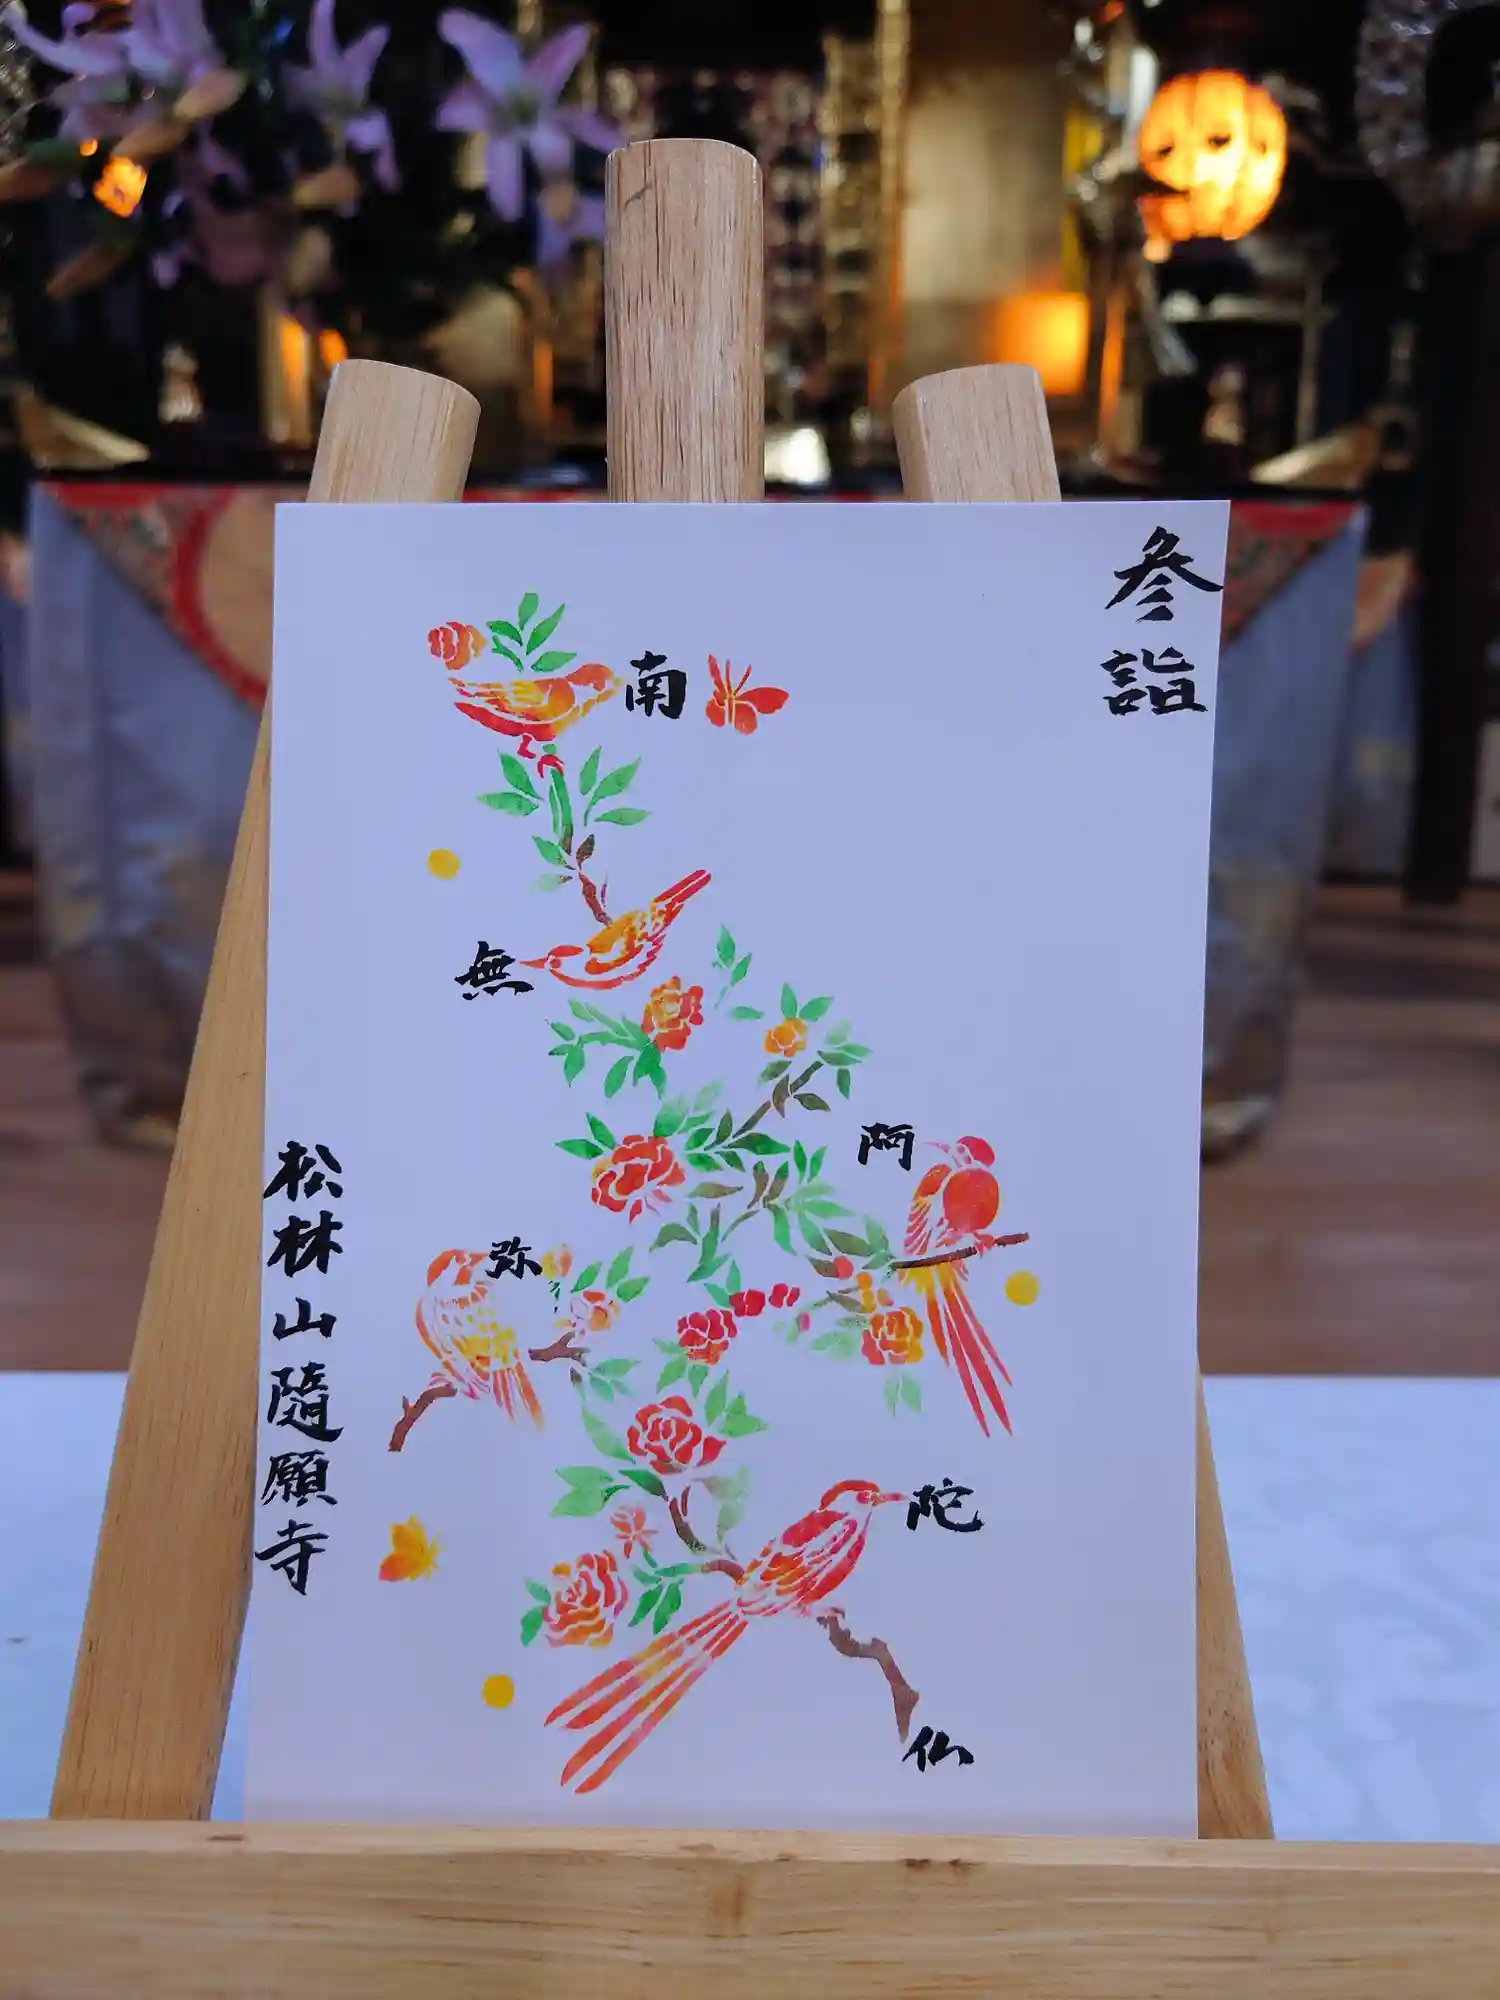 参詣
南
無
阿
弥
陀
仏
松林山隨願寺